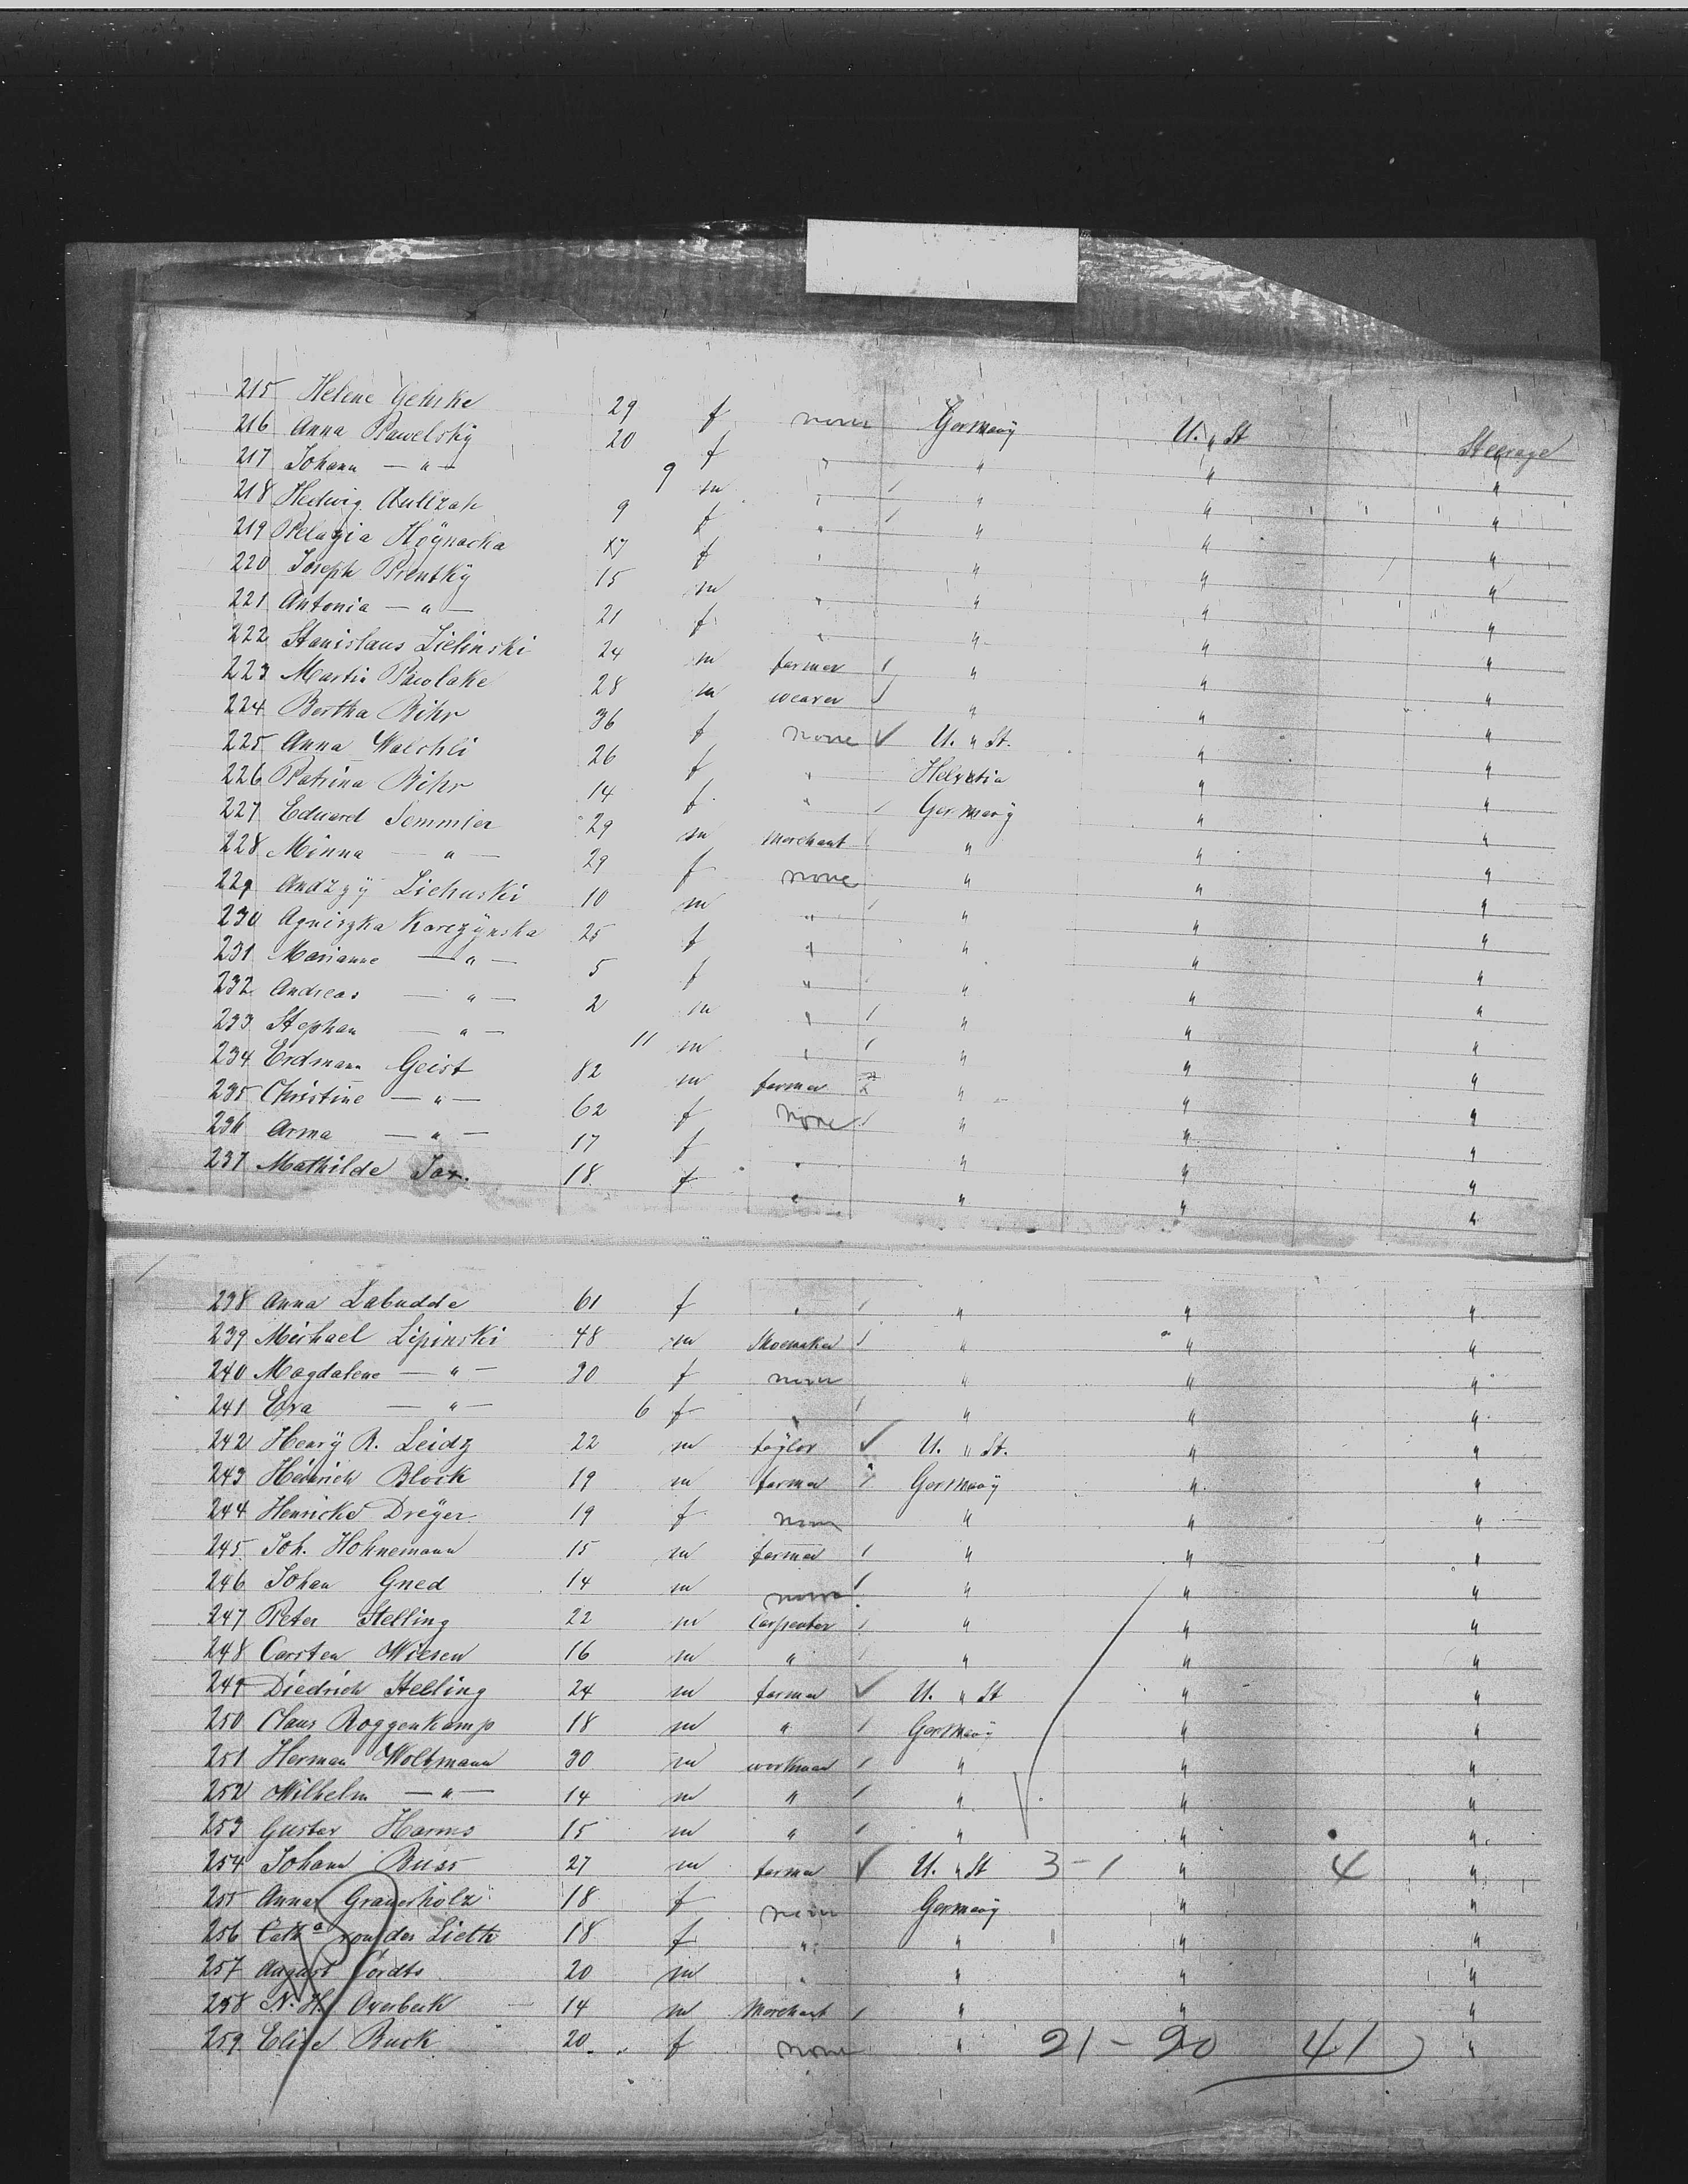 215 Helene Gehrke 29 f none Germany U. " St Steerage
216 Anna Pawelsky 20 f " " " "
217 Johann — " — 9 m " " " "
218 Hedwig 9 f " " " "
219 Pelagia Hoÿnacka 17 f " " " "
220 Joseph Prentky 15 m " " " "
221 Antonia — " — 21 f " " " "
222 Stanislaus Zielinski 24 m farmer " " "
223 Martin Pawlake 28 m weaver " " "
224 Bertha Bihr 36 f none U. " St. " "
225 Anna Walchli 26 f " Helvetia " "
226 Katrina Bihr 14 f " Germany " "
227 Eduard Semmler 29 m Merchant " " "
228 Minna — " — 29 f none " " "
229 Andzÿ Lichuski 10 m " " " "
230 Agniszka Karczÿnska 25 f " " " "
231 Marianne — " — 5 f " " " "
232 Andreas — " — 2 m " " " "
233 Stephan — " — 11 m " " " "
234 Erdmann Geist 82 m farmer " " "
235 Christine — " — 62 f none " " "
236 Anna — " — 17 f " " " "
237 Mathilde Jax. 18 f " " " "
238 Anna Labudde 61 f " " " "
239 Michael Lipinski 48 m Shoemaker " " "
240 Magdalene — " — 30 f none " " "
241 Eva — " — 6 f " " " "
242 Henrÿ R. Leidz 22 m taylor U. " St. " "
243 Heinrich Block 19 m farmer Germany " "
244 Henricke Dreÿer 19 f none " " "
245 Joh. Hohnemann 15 m farmer " " "
246 Johan Gned 14 m none " " "
247 Peter Stelling 22 m Carpenter " " "
248 Carsten Wiesen 16 m " " " "
249 Diedrich Stelling 24 m farmer U. " St " "
250 Claus Roggenkamp 18 m " Germany " "
251 Herman Woltmann 30 m workman " " "
252 Wilhelm — " — 14 m " " " "
253 Gustav Harms 15 m " " " "
254 Johann Buss 27 m farmer U. " St 3-1 " 4 "
255 Anna Grauerholz 18 f none Germany " "
256 Catha von der Lieth 18 f " " " "
257 August Cordts 20 m " " " "
258 N. H. Overbeck 14 m Merchant " " "
259 Elise Buck 20 f none " 21-20 41 "